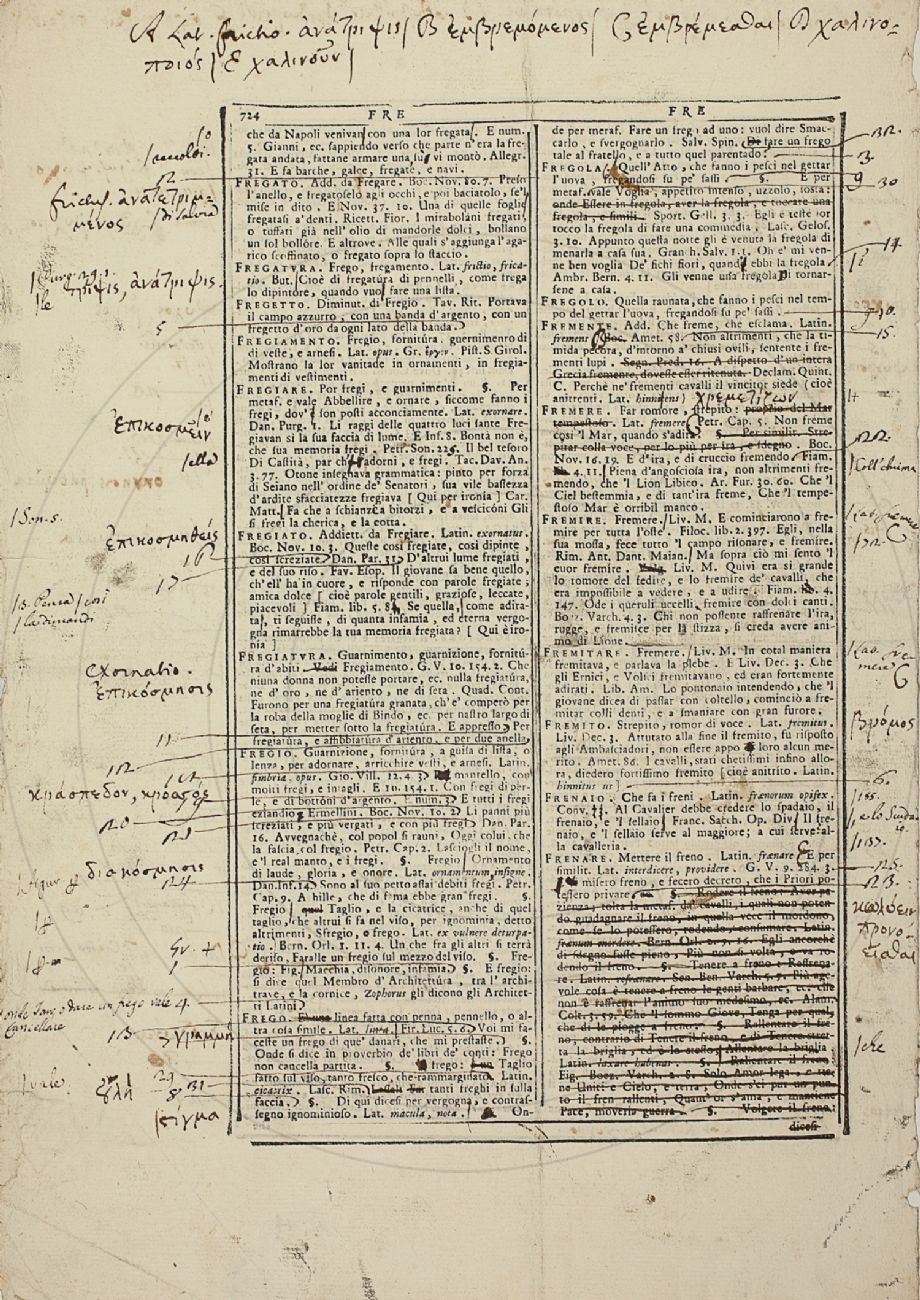 A Lat. frictio. ἀνάτριψις / B ἐμβρεμόμενος / C ἐμβρέμεσθαι / D χαλινο-
ποιός / E χαλινοῦν /
724 FRE FRE
che da Napoli venivan con una lor fregata. E num.
5. Gianni, ec. sappiendo verso che parte n'era la fre-
gata andata, fattane armare una vi montò. Allegr.
31. E fa barche, galee, fregate, e navi.
FREGATO. Add. da Fregare. Boc. Nov. 10. 7. Preso
l'anello, e fregatoselo agli occhi, e poi baciatolo, se'l
mise in dito. E Nov. 37. 10. Una di quelle foglie
fregatasi a' denti. Ricett. Fior. I mirabolani fregati,
o tuffati già nell'olio di mandorle dolci, bollano
un sol bollore. E altrove. Alle quali s'aggiunga l'aga-
rico stroffinato, o fregato sopra lo staccio.
FREGATURA. Frego, fregamento. Lat. frictio, frica-
tio. But. Cioè di fregatura di pennelli, come frega
lo dipintore, quando vuol fare una lista.
FREGETTO. Diminut. di Fregio. Tav. Rit. Portava
il campo azzurro, con una banda d'argento, con un
fregetto d'oro da ogni lato della banda.
FREGIAMENTO. Fregio, fornitura, guernimento di
di veste, e arnesi. Lat. opus. Gr. ἔργον. Pist. S. Girol.
Mostrano la lor vanitade in ornamenti, in fregia-
menti di vestimenti.
FREGIARE. Por fregi, e guarnimenti. §. Per
metaf. e vale Abbellire, e ornare, siccome fanno i
fregi, dov' son posti acconciamente. Lat. exornare.
Dan. Purg. 1. Li raggi delle quattro luci sante Fre-
giavan sì la sua faccia di lume. E Inf. 8. Bontà non è,
che sua memoria fregi. Petr. Son. 226. Il bel tesoro
Di Castità, par ch' adorni, e fregi. Tac. Dav. An.
3. 77. Otone insegnava grammatica: pinto per forza
di Seiano nell'ordine de' Senatori, sua vile bassezza
d'ardite sfacciatezze fregiava [ Qui per ironia ] Car.
Matt. Fa che a schianza bitorzi, e a vesciconi Gli
si freri la cherica, e la cotta.
FREGIATO. Addiett. da Fregiare. Latin. exornatus.
Boc. Nov. 10. 3. Queste così fregiate, così dipinte,
così screziate. Dan. Par. 31. D'altrui lume fregiati,
e del suo riso. Fav. Esop. Il giovane sa bene quello,
ch'ell' ha in cuore, e risponde con parole fregiate;
amica dolce [ cioè parole gentili, graziose, leccate,
piacevoli ] Fiam. lib. 5. 84. Se quella, come adira-
ta, ti seguisse, di quanta infamia, ed eterna vergo-
gna rimarrebbe la tua memoria fregiata? [ Qui è iro-
nia ]
FREGIATURA. Guarnimento, guarnizione, fornitu-
ra d'abiti. Vedi Fregiamento. G. V. 10. 154. 2. Che
niuna donna non potesse portare, ec. nulla fregiatura,
ne d'oro, ne d'ariento, ne di seta. Quad. Cont.
Furono per una fregiatura granata, ch'e' comperò per
la roba della moglie di Bindo, ec. per nastro largo di
seta, per metter sotto la fregiatura. E appresso Per
fregiatura, e affibbiatura d'ariento, e per due anella.
FREGIO. Guarnizione, fornitura, a guisa di lista, o
lenza, per adornare, arricchire vesti, e arnesi. Latin.
fimbria, opus. Gio. Vill. 12. 4. 3. mantello, con
molti fregi, e intagli. E 10. 154. 1. Con fregi di per-
le, e di bottoni d'argento. E num. 3. E tutti i fregi
eziandio Ermellini. Boc. Nov. 10. 2. Li panni più
screziati, e più vergati, e con più fregi. Dan. Par.
16. Avvegnachè, col popol si rauni, Oggi colui, che
la fascia col fregio. Petr. Cap. 2. Lasciogli il nome,
e'l real manto, e i fregi. §. Fregio, Ornamento
di laude, gloria, e onore. Lat. ornamentum, insigne.
Dan. Inf. 14. Sono al suo petto assai debiti fregi. Petr.
Cap. 9. A hille, che di fama ebbe gran' fregi. §.
Fregio, quel Taglio, e la cicatrice, anche di quel
taglio, che altrui si fa nel viso, per ignominia, detto
altrimenti, Sfregio, o frego. Lat. ex vulnere deturpa-
tio. Bern. Orl. 1. 11. 4. Un che fra gli altri si terrà
deriso, Faralle un fregio sul mezzo del viso. §. Fre-
gio: Fig. Macchia, disonore, infamia. §. E fregio:
si dice quel Membro d'Architettura, tra l' archi-
trave, e la cornice, Zophorus gli dicono gli Architet-
ti Latini
FREGO. E' una linea fatta con penna, pennello, o al-
tra cosa simile. Lat. linea. Fir. Luc. 5. 6. Voi mi fa-
ceste un frego di que' danari, che mi prestaste. §.
Onde si dice in proverbio de' libri de' conti: Frego
non cancella partita. §. frego: è un Taglio
fatto sul viso, tanto fresco, che rammarginato. Latin.
cicatrix. Lasc. Rim. far tanti freghi in sulla
faccia. §. Di qui dicesi per vergogna, e contras-
segno ignominioso. Lat. macula, nota. On-
de per metaf. Fare un frego ad uno: vuol dire Smac-
carlo, e svergognarlo. Salv. Spin. Di fare un frego
tale al fratello, e a tutto quel parentado.
FREGOLA. Quell' Atto, che fanno i pesci nel gettar
l'uova, fregandosi su pe' sassi. §. E per
metaf. vale Voglia, appetito intenso, uzzolo, iosta:
onde Essere in fregola, aver la fregola, e toccare una
fregola, e simili. Sport. Gell. 3. 3. Egli è teste lor
tocco la fregola di fare una commedia. Lasc. Gelos.
3. 10. Appunto questa notte gli è venuta la fregola di
menarla a casa sua. Gran h. Salv. 1. 1. Oh e' mi ven-
ne ben voglia De' fichi fiori, quand' ebbi la fregola
Ambr. Bern. 4. 11. Gli venne una fregola Di tornar-
sene a casa.
FREGOLO. Quella raunata, che fanno i pesci nel tem-
po del gettar l'uova, fregandosi su pe' sassi.
FREMENTE. Add. Che freme, che esclama. Latin.
fremens Boc. Amet. 58. Non altrimenti, che la ti-
mida pecora, d'intorno a' chiusi ovili, sentente i fre-
menti lupi. Segn. Pred. 16. A dispetto d'un'intera
Grecia fremente, dovesse esser ritenuta. Declam. Quint.
C. Perchè ne' frementi cavalli il vincitor siede (cioè
anitrenti. Lat. hinnitens) χρεμετίζων
FREMERE. Far romore, strepito: proprio del Mar
tempestoso. Lat. fremere Petr. Cap. 5. Non freme
così 'l Mar, quando s'adira. §. Per similit. Stre-
pitar colla voce, per lo più per ira, e sdegno. Boc.
Nov. 16. 19. E d'ira, e di cruccio fremendo. Fiam.
4. 11. Piena d'angosciosa ira, non altrimenti fre-
mendo, che 'l Lion Libico. Ar. Fur. 30. 60. Che 'l
Ciel bestemmia, e di tant'ira freme, Che 'l tempe-
stoso Mar è orribil manco.
FREMIRE. Fremere. Liv. M. E cominciarono a fre-
mire per tutta l'oste. Filoc. lib. 2. 397. Egli, nella
sua mossa, fece tutto 'l campo risonare, e fremire.
Rim. Ant. Dant. Maian. Ma sopra ciò mi sento 'l
cuor fremire. Liv. M. Quivi era sì grande
lo romore del fedire, e lo fremire de' cavalli, che
era impossibile a vedere, e a udire. Fiam. 4.
147. Ode i queruli uccelli, fremire con dolci canti.
Boez. Varch. 4. 3. Chi non possente raffrenare l'ira,
rugge, e fremisce per la stizza, si creda avere ani-
mo di Lione.
FREMITARE. Fremere. Liv. M. In cotal maniera
fremitava, e parlava la plebe. E Liv. Dec. 3. Che
gli Ernici, e Volsci fremitavano, ed eran fortemente
adirati. Lib. Am. Lo pontonaio intendendo, che 'l
giovane dicea di passar con coltello, cominciò a fre-
mitar colli denti, e a smaniare con gran furore.
FREMITO. Strepito, romor di voce. Lat. fremitus.
Liv. Dec. 3. Attutato alla fine il fremito, fu risposto
agli Ambasciadori, non essere appo loro alcun me-
rito. Amet. 86. I cavalli, stati chetissimi infino allo-
ra, diedero fortissimo fremito [cioè anitrito. Latin.
hinnitus us]
FRENAIO. Che fa i freni. Latin. frænorum opifex.
Conv. Al Cavalier debbe credere lo spadaio, il
frenaio, e 'l sellaio. Franc. Sacch. Op. Div. Il fre-
naio, e 'l sellaio serve al maggiore; a cui serve al-
la cavalleria.
FRENARE. Mettere il freno. Latin. frænare E per
similit. Lat. interdicere, providere. G. V. 9. 284. 3.
misero freno, e fecero decreto, che i Priori po-
tessero privare §. Rodere il freno: Aver pa-
zienza, tolta la metaf. da' cavalli, i quali non poten-
do guadagnare il freno, in quella vece il mordono,
come se lo potessero, rodendo, consumare. Latin.
frænum mordere. Bern. Orl. 2. 9. 16. Egli ancorchè
di sdegno fusse pieno, Più non si volta, e va ro-
dendo il freno. §. Tenere a freno: Raffrena-
re. Latin. refrænare. Sen. Ben. Varch. 5. 7. Più age-
vole cosa è tenere a freno le genti barbare, ec. che
non è raffrenar l'animo suo medesimo, ec. Alam.
Colt. 3. 59. Che 'l sommo Giove, Tenga per qual,
che di le piogge a freno. §. Rallentare il fre-
no, contrario di Tenere il freno, e di Tenere stret-
ta la briglia, ed è lo stesso Allentare la briglia.
Latin. laxare habenas. §. Rallentare il freno:
Fig. Boez. Varch. 2. 8. Solo Amor lega, e tie-
ne Uniti e Cielo, e terra, Onde s'ei pur un pun-
to il fren rallenti, Quant'or s'ama, e mantiene
Pace, moveria guerra. §. Volgere il freno:
dicesi
ἐπικοσμεῖν
/ella
/Son. 5.
ἐπικοσμηθείς
16
17
exornatio.
ἐπικόσμησις
11
κράσπεδον, κρόσσος
20
21
διακόσμησις
24
13
γραμμή
/vale
οὐλή
στίγμα
3.
9
30
14
15.
Coll'chiusa
βρόμος
6.
23.
κωλύειν
προνο-
εῖσθαι
/che